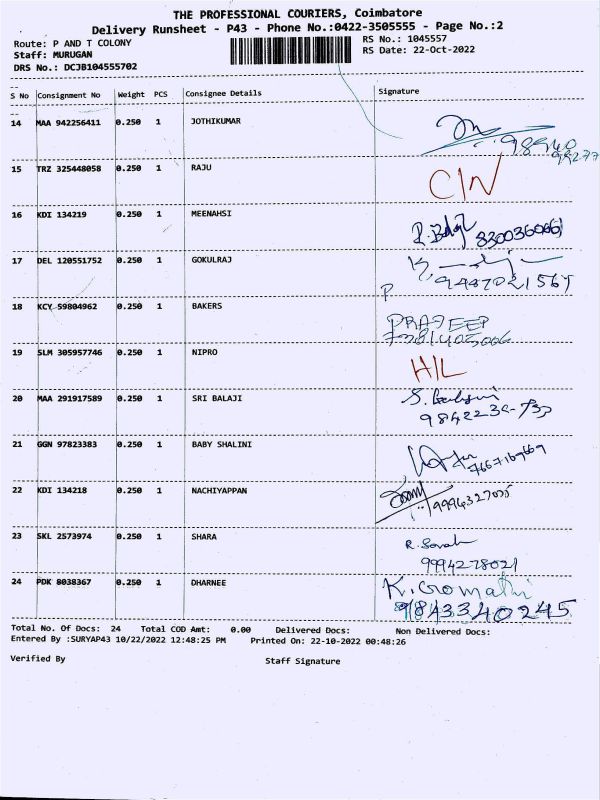 THE PROFESSIONAL COURIERS, Coimbatore
Delivery Runsheet - P43 - Phone No.:0422-3505555 - Page No.:2
Route: P AND T COLONY
RS No.: 1045557
Staff: MURUGAN
RS Date: 22-Oct-2022
DRS No.: DCJB104555702
S No Consignment No Weight PCS Consignee Details Signature
14 MAA 942256411 0.250 1 JOTHIKUMAR
15 TRZ 325448058 0.250 1 RAJU C/N
16 KDI 134219 0.250 1 MEENAHSI
17 DEL 120551752 0.250 1 GOKULRAJ
P
18 KCY 59804962 0.250 1 BAKERS PRADEEP
7381405006
19 SLM 305957746 0.250 1 NIPRO H/L
20 MAA 291917589 0.250 1 SRI BALAJI
21 GGN 97823383 0.250 1 BABY SHALINI
22 KDI 134218 0.250 1 NACHIYAPPAN
23 SKL 2573974 0.250 1 SHARA
9994278021
24 PDK 8038367 0.250 1 DHARNEE K. Gomathi
9843340245
Total No. Of Docs: 24 Total COD Amt: 0.00 Delivered Docs: Non Delivered Docs:
Entered By :SURYAP43 10/22/2022 12:48:25 PM Printed On: 22-10-2022 00:48:26
Verified By Staff Signature